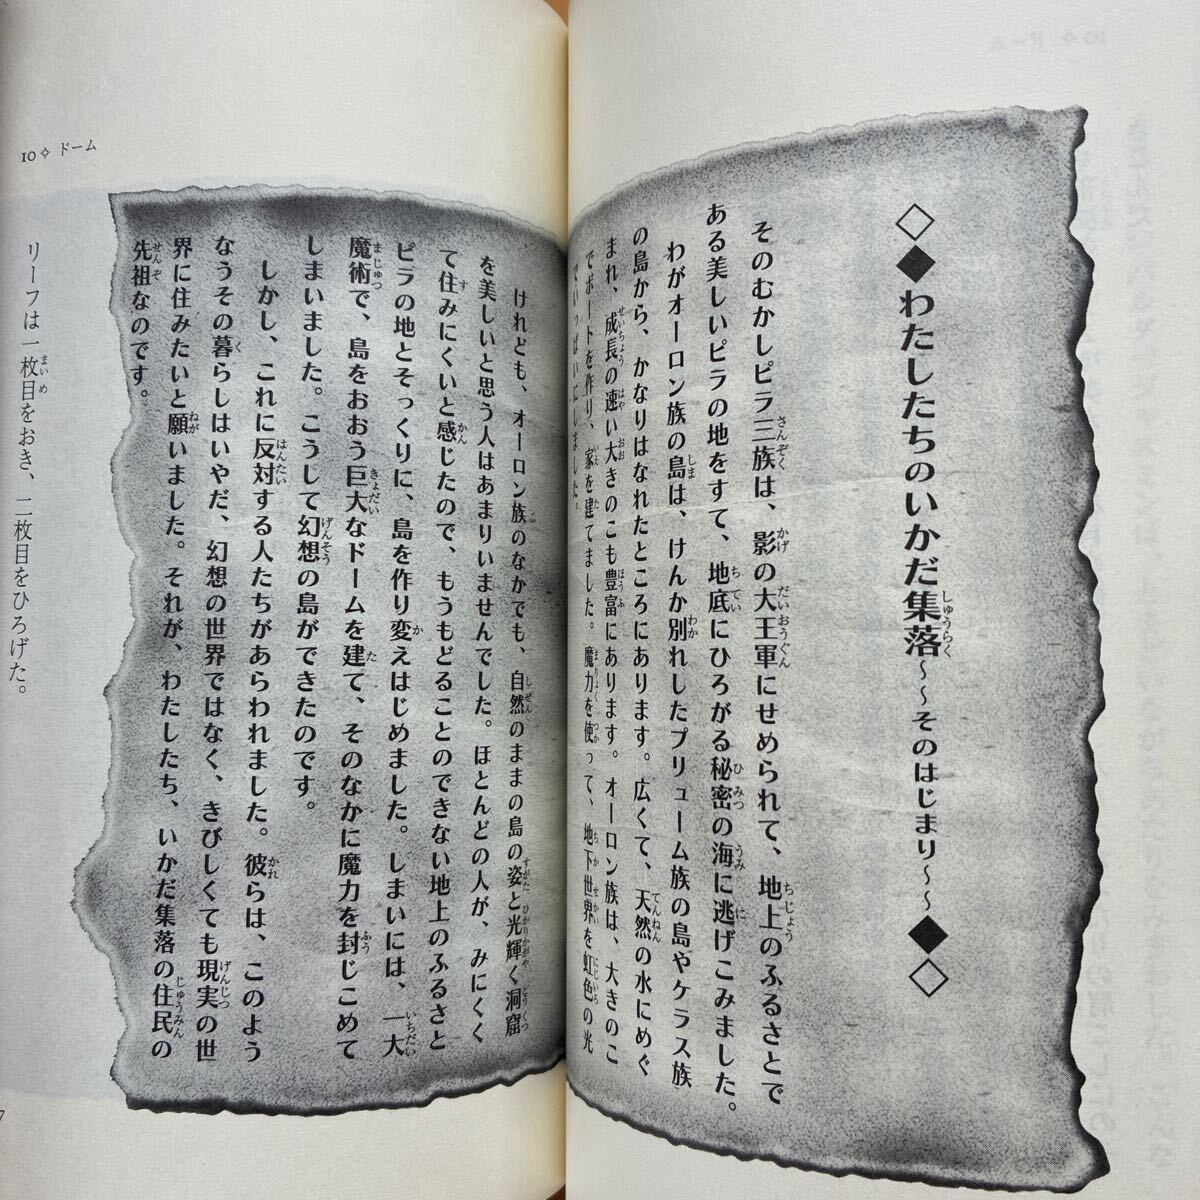 ◇◆わたしたちのいかだ集落～～そのはじまり～～◆◇
そのむかしピラ三族は、影の大王軍にせめられて、地上のふるさとで
ある美しいピラの地をすて、地底にひろがる秘密の海に逃げこみました。
わがオーロン族の島は、けんか別れしたプリューム族の島やケラス族
の島から、かなりはなれたところにあります。広くて、天然の水にめぐ
まれ、成長の速い大きのこも豊富にあります。オーロン族は、大きのこ
でボートを作り、家を建てました。魔力を使って、地下世界を虹色の光
でいっぱいにしました。
けれども、オーロン族のなかでも、自然のままの島の姿と光輝く洞窟
を美しいと思う人はあまりいませんでした。ほとんどの人が、みにくく
て住みにくいと感じたので、もうもどることのできない地上のふるさと
ピラの地とそっくりに、島を作り変えはじめました。しまいには、一大
魔術で、島をおおう巨大なドームを建て、そのなかに魔力を封じこめて
しまいました。こうして幻想の島ができたのです。
しかし、これに反対する人たちがあらわれました。彼らは、このよう
なうその暮らしはいやだ、幻想の世界ではなく、きびしくても現実の世
界に住みたいと願いました。それが、わたしたち、いかだ集落の住民の
先祖なのです。
リーフは一枚目をおき、二枚目をひろげた。
10✧ ドーム
7